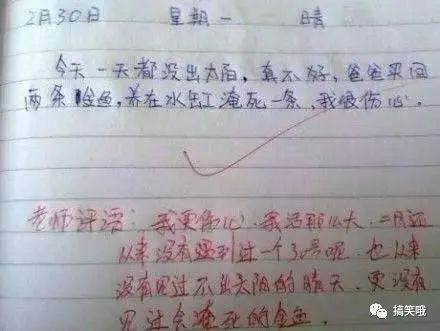 2月30日 星期一 晴
今天一天都没出太阳，真不好，爸爸买回
两条金鱼，养在水缸淹死一条，我很伤心。
老师评语：我更伤心，我活那么大，二月还
从来没有遇到过一个30号呢，也从来
没有见过不出太阳的晴天，更没有
见过会淹死的金鱼.
搞笑哦